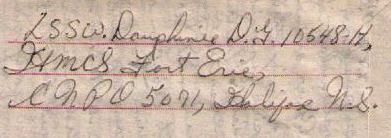 LSSW. Dauphinee D.G. 10548-H,
HMCS Fort Erie,
C.F.P.O 5071, Halifax N.S.